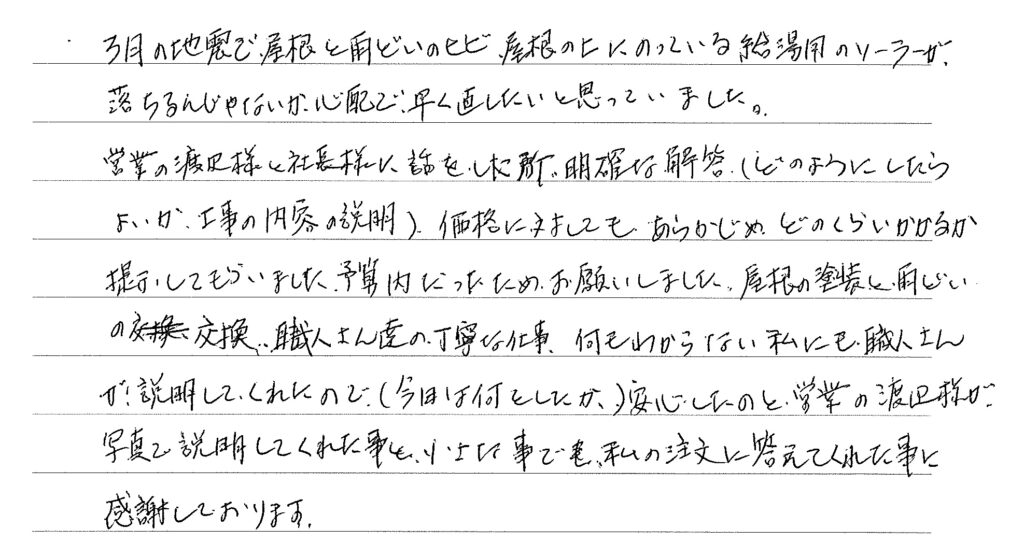 3月の地震で、屋根と雨どいのヒビ、屋根の上にのっている給湯用のソーラーが、
落ちるんじゃないか、心配で、早く直したいと思っていました。
営業の渡辺様と社長様に、話をした所、明確な解答、(どのようにしたら
よいか、工事の内容の説明)、価格に対しても、あらかじめ、どのくらいかかるか
提示してもらいました、予算内だったため、お願いしました、屋根の塗装と、雨どい
の交換、職人さん達の、丁寧な仕事、何もわからない私にも、職人さん
が、説明してくれたので、(今日は何をしたか、)安心したのと、営業の渡辺様が、
写真で説明してくれた事と、小さな事でも、私の注文に答えてくれた事に
感謝しております。